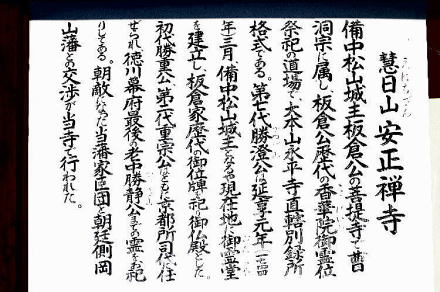 慧日山 安正禅寺
えにちざん
備中松山城主板倉公の菩提寺で曹
洞宗に属し、板倉公歴代の香華院御霊位
祭祀の道場で、大本山永平寺直轄別録所
格式である。第七代勝澄公は延享元年一七四四
年三月、備中松山城主となるや現在地に御霊堂
を建立し、板倉家歴代の御位牌を祀り御仏殿とした。
初代勝重公、第二代重宗公はともに京都所司代に任
ぜられ、徳川幕府最後の老中勝静公までの霊をお祀
りしてある。朝敵になった当藩家臣団と朝廷側岡
山藩との交渉が当寺で行われた。